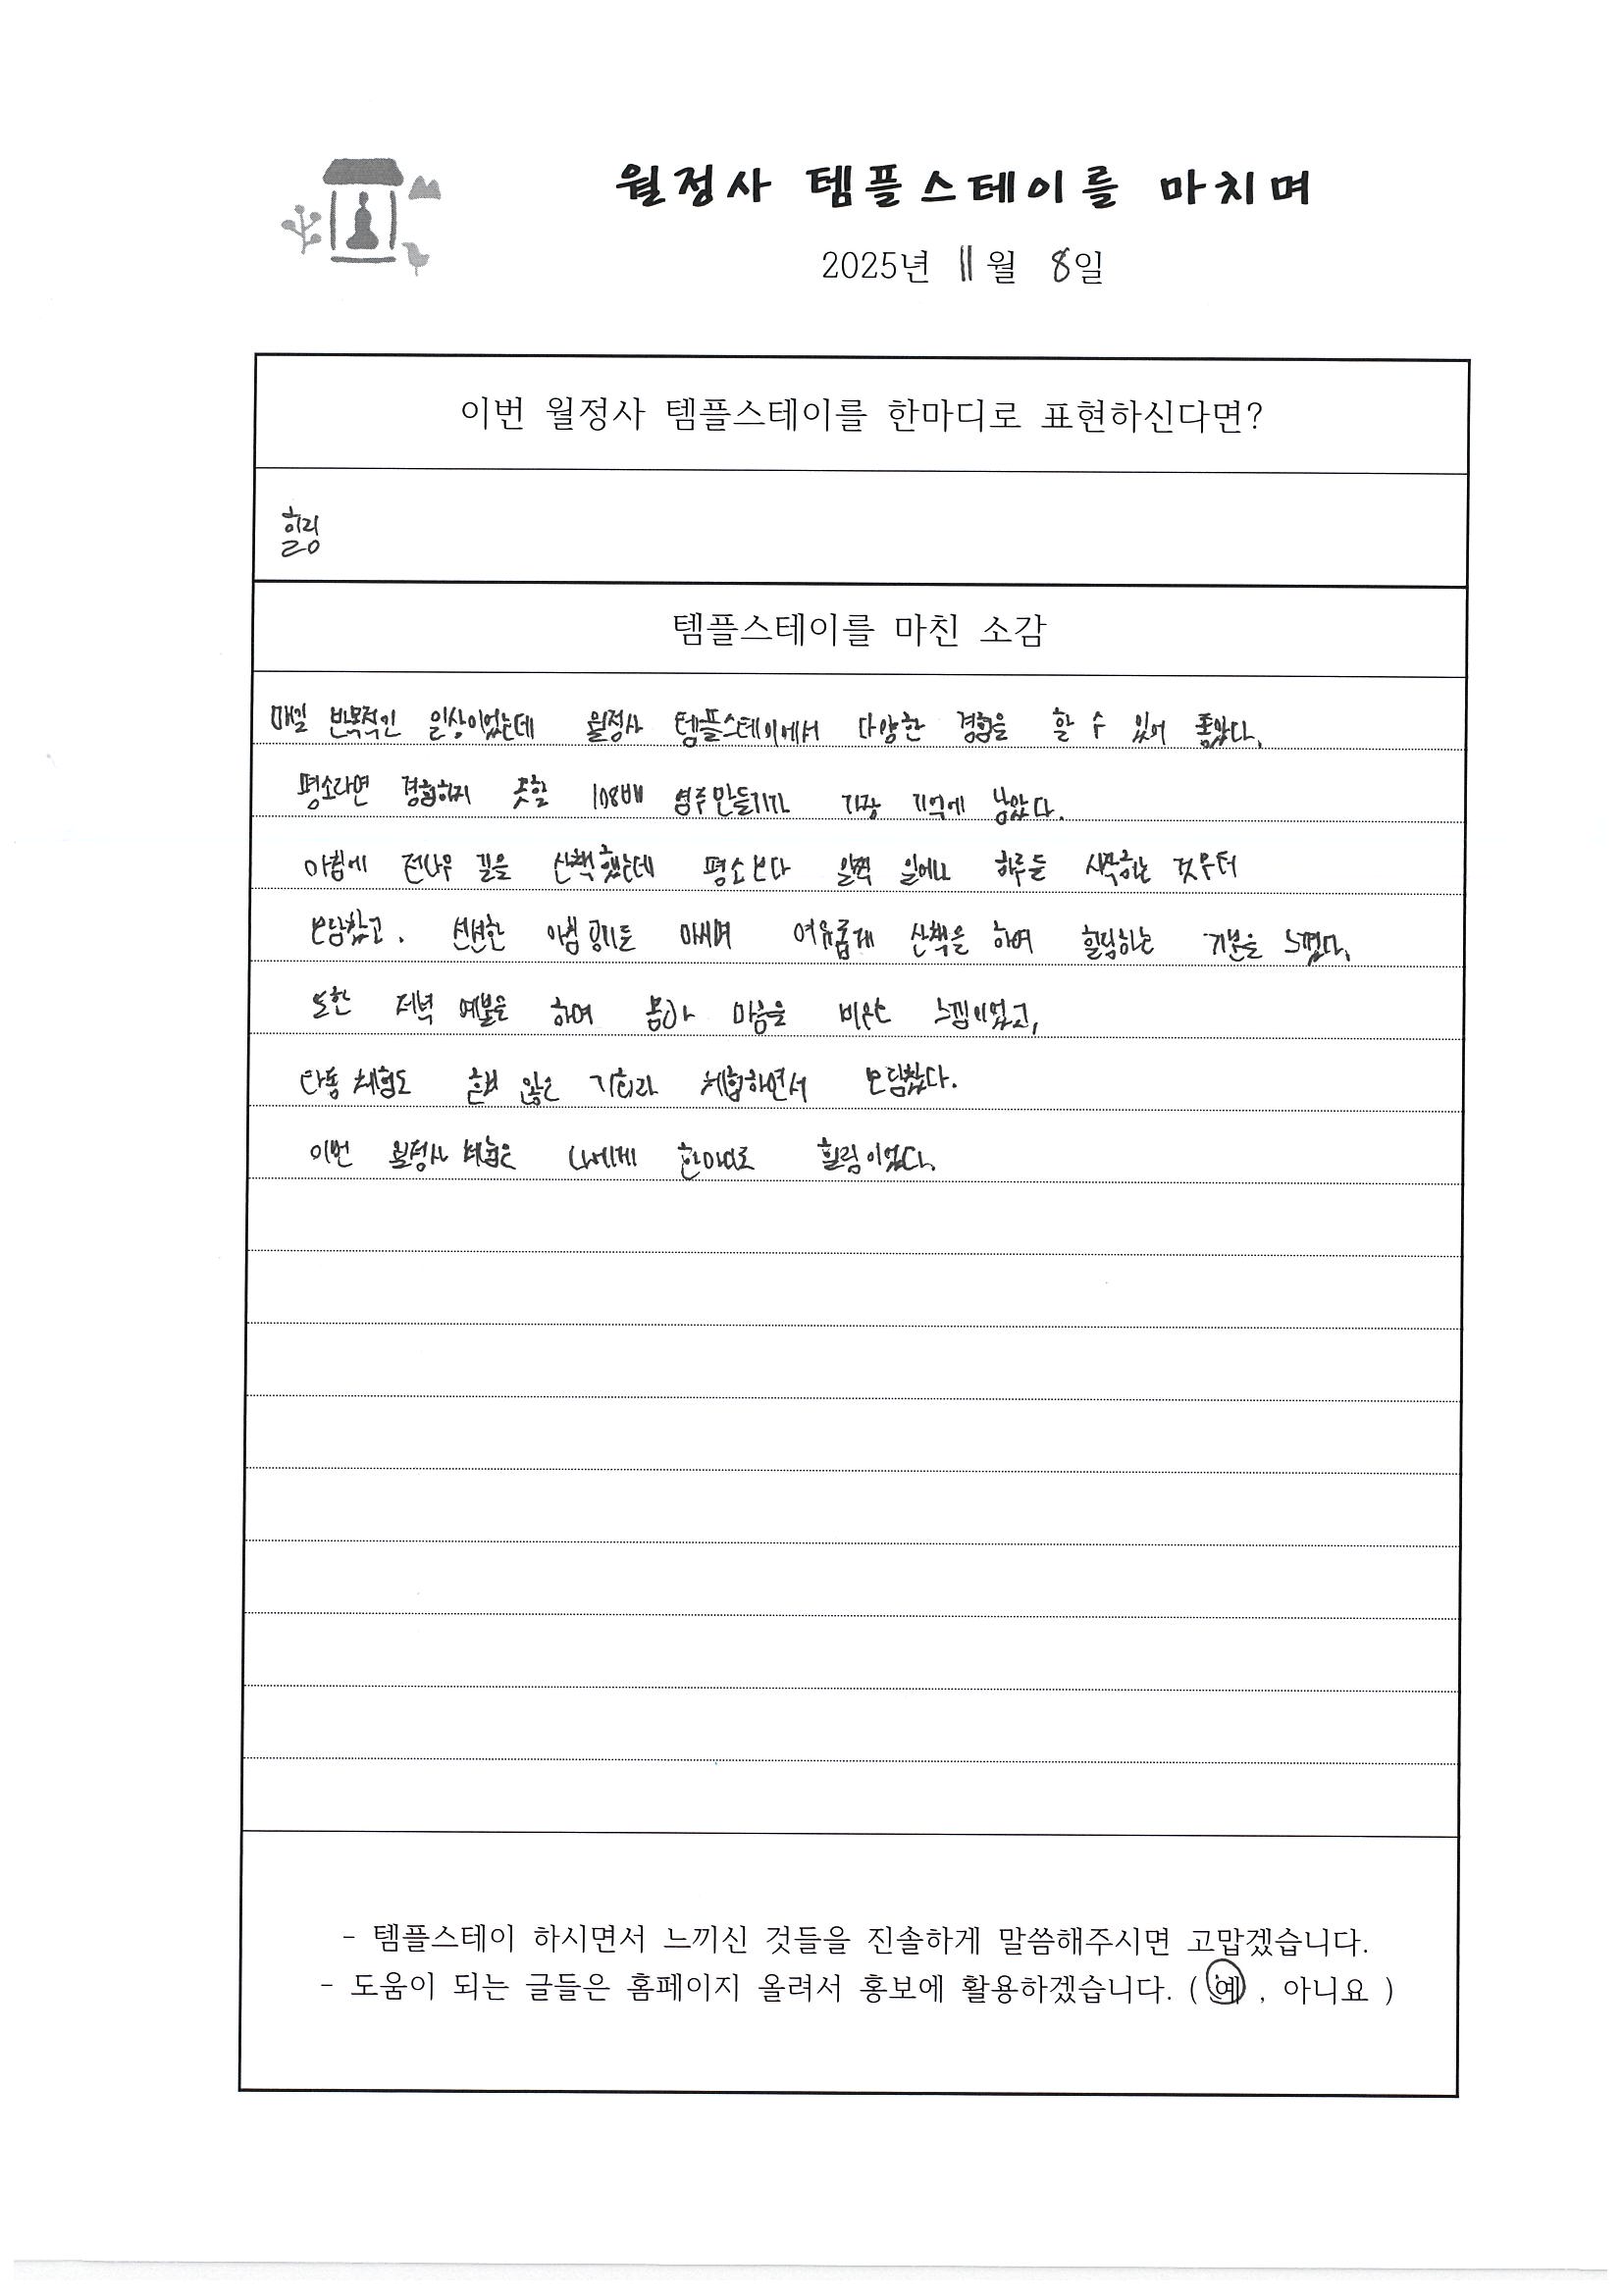 월정사 템플스테이를 마치며
2025년 11월 8일
이번 월정사 템플스테이를 한마디로 표현하신다면?
힐링
템플스테이를 마친 소감
매일 반복적인 일상이었는데 월정사 템플스테이에서 다양한 경험을 할 수 있어 좋았다.
평소라면 경험하지 못할 108배 염주만들기가 가장 기억에 남았다.
아침에 전나무 길을 산책했는데 평소보다 일찍 일어나 하루를 시작하는 것부터
보람찼고. 선선한 아침 공기를 마시며 여유롭게 산책을 하여 힐링하는 기분을 느꼈다.
또한 저녁 예불을 하여 몸과 마음을 비우는 느낌이었고,
타종 체험도 흔치 않은 기회라 체험하면서 보람찼다.
이번 월정사 체험은 나에게 한마디로 힐링이었다.
- 템플스테이 하시면서 느끼신 것들을 진솔하게 말씀해주시면 고맙겠습니다.
- 도움이 되는 글들은 홈페이지 올려서 홍보에 활용하겠습니다. ( 예 , 아니요 )